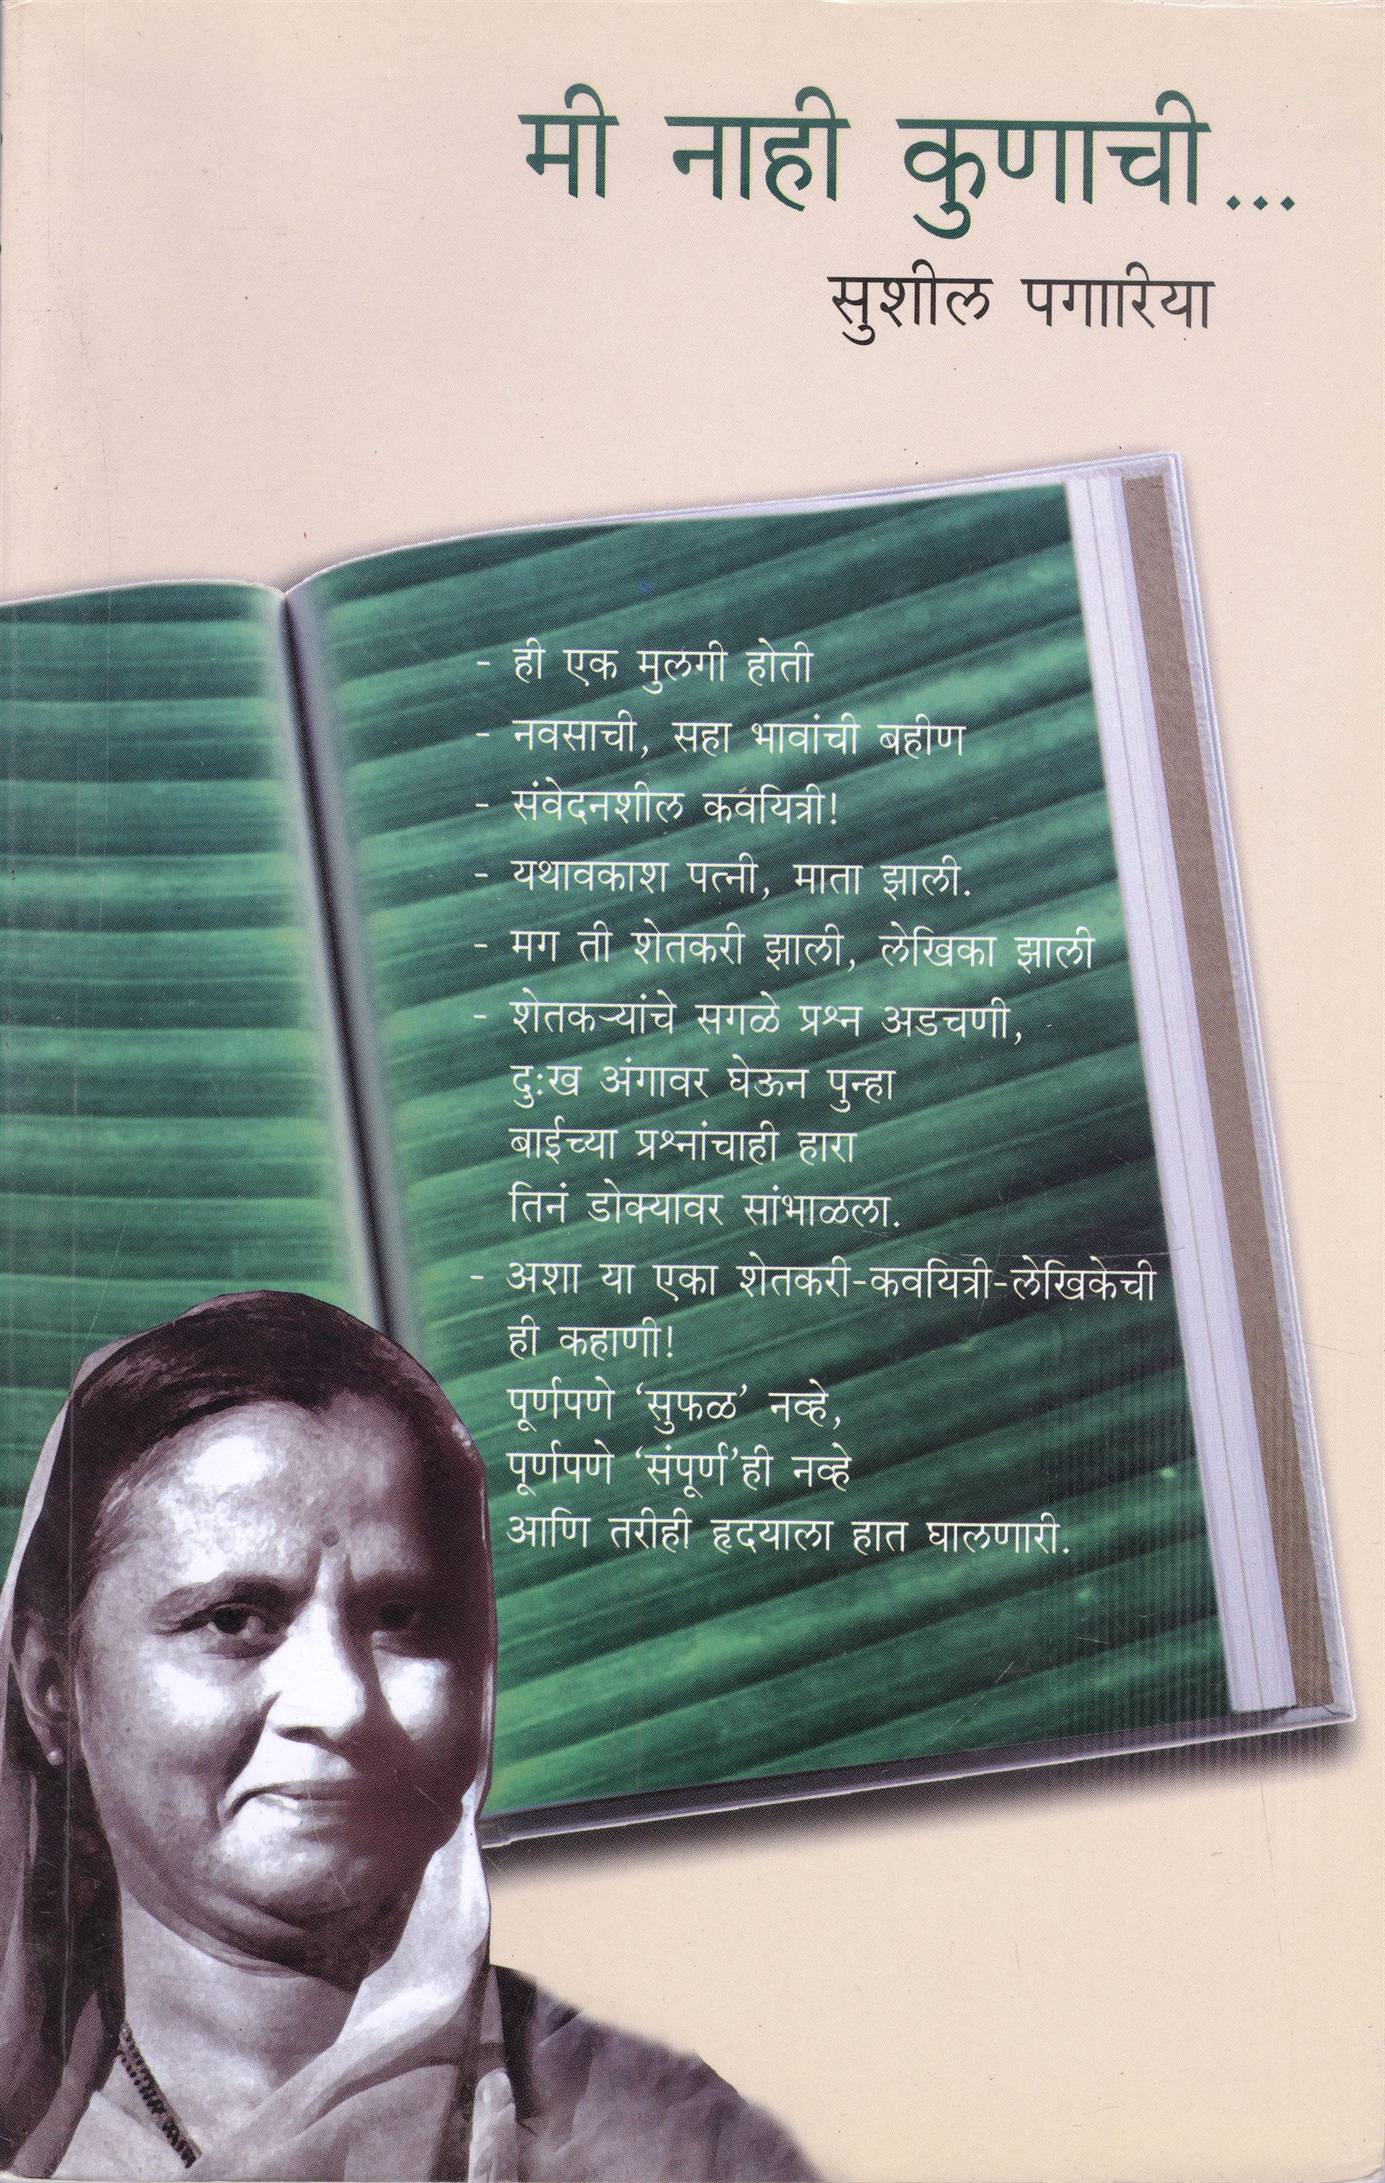 मी नाही कुणाची...
सुशील पगारिया
- ही एक मुलगी होती
- नवसाची, सहा भावांची बहीण
- संवेदनशील कवयित्री!
- यथावकाश पत्नी, माता झाली.
- मग ती शेतकरी झाली, लेखिका झाली
- शेतकऱ्यांचे सगळे प्रश्न अडचणी,
दुःख अंगावर घेऊन पुन्हा
बाईच्या प्रश्नांचाही हारा
तिनं डोक्यावर सांभाळला.
- अशा या एका शेतकरी-कवयित्री-लेखिकेची
ही कहाणी!
पूर्णपणे ‘सुफळ’ नव्हे,
पूर्णपणे ‘संपूर्ण’ही नव्हे
आणि तरीही हृदयाला हात घालणारी.